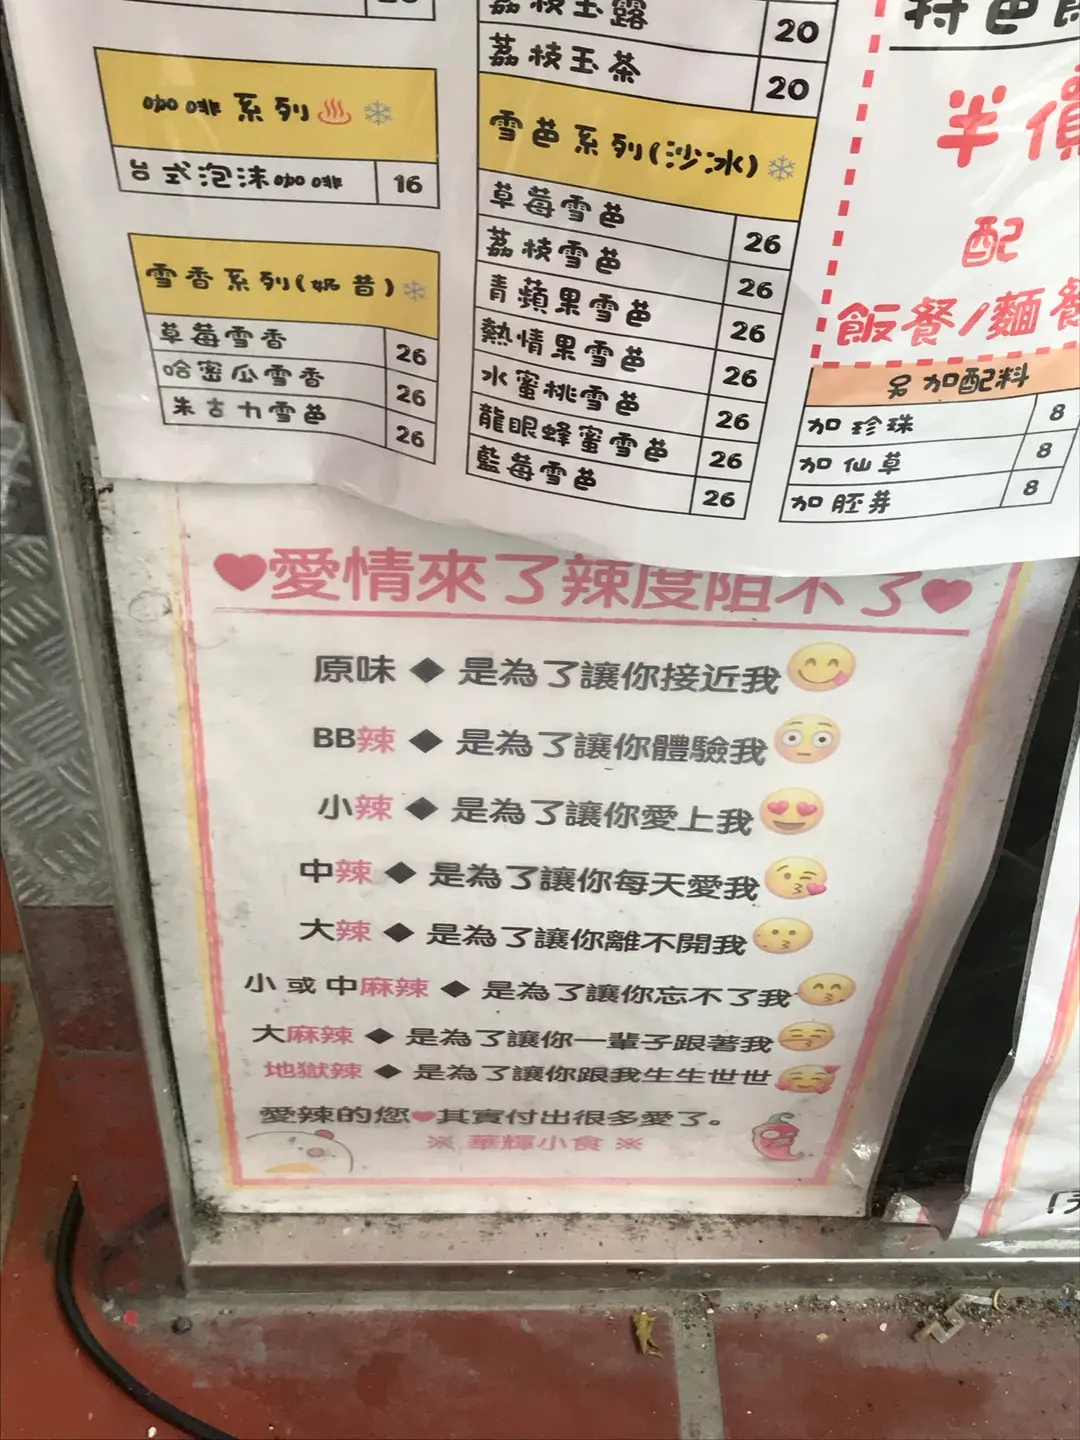 咖啡系列
台式泡沫咖啡 16
雪香系列(奶昔)
草莓雪香 26
哈密瓜雪香 26
朱古力雪芭 26
荔枝玉露 20
荔枝玉茶 20
雪芭系列(沙冰)
草莓雪芭 26
荔枝雪芭 26
青蘋果雪芭 26
熱情果雪芭 26
水蜜桃雪芭 26
龍眼蜂蜜雪芭 26
藍莓雪芭 26
半價
配
飯餐/麵餐
另加配料
加珍珠 8
加仙草 8
加胚芽 8
愛情來了辣度阻不了
原味◆是為了讓你接近我
BB辣◆是為了讓你體驗我
小辣◆是為了讓你愛上我
中辣◆是為了讓你每天愛我
大辣◆是為了讓你離不開我
小或中麻辣◆是為了讓你忘不了我
大麻辣◆是為了讓你一輩子跟著我
地獄辣◆是為了讓你跟我生生世世
愛辣的您♥其實付出很多愛了。
※ 華輝小食 ※